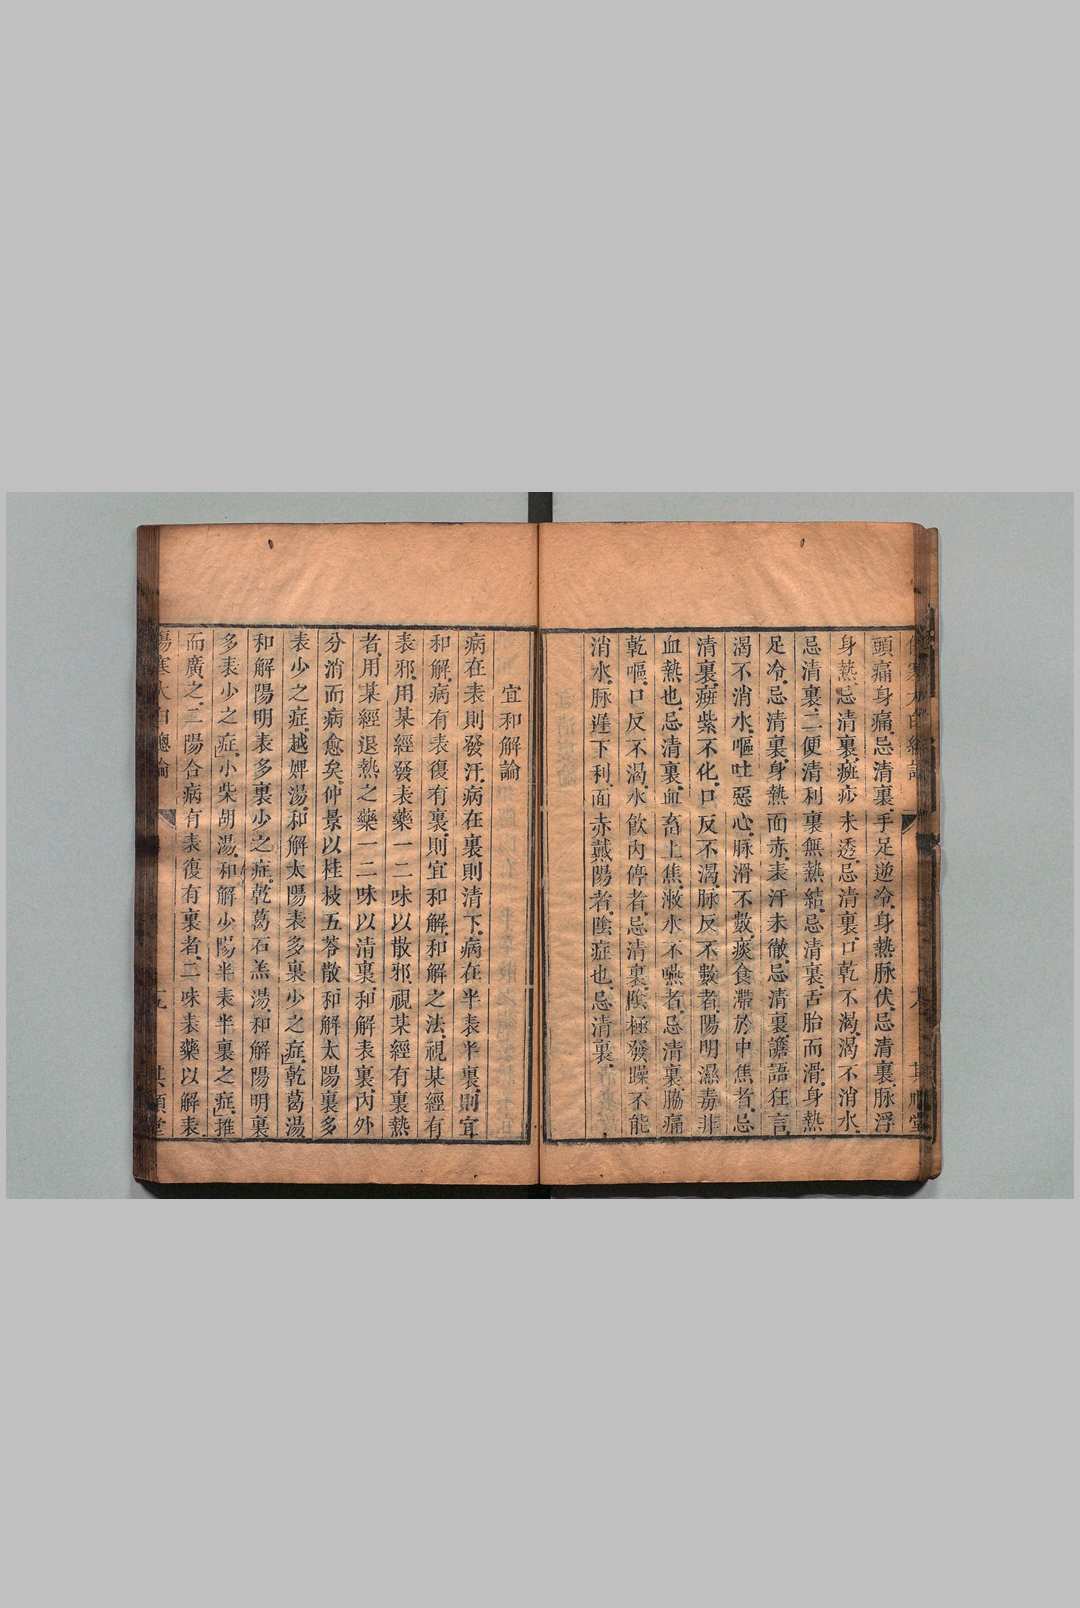 頭痛身痛忌清裏手足逆冷身熱脉伏忌清裏脉浮
身熱忌清裏癍疹未透忌清裏口乾不渴渴不消水
忌清裏二便清利裏無熱結忌清裏舌胎而滑身熱
足冷忌清裏身熱面赤表汗未徹忌清裏譫語狂言
渴不消水嘔吐惡心脉滑不數痰食滯於中焦者忌
清裏癍紫不化口反不渴脉反不數者陽明濕毒非
血熱也忌清裏血畜上焦漱水不嚥者忌清裏脇痛
乾嘔口反不渴水飲內停者忌清裏陰極發躁不能
消水脉遲下利面赤戴陽者陰症也忌清裏
宜和解論
病在表則發汗病在裏則清下病在半表半裏則宜
和解病有表復有裏則宜和解和解之法視某經有
表邪用某經發表藥一二味以散邪視某經有裏熱
者用某經退熱之藥一二味以清裏和解表裏內外
分消而病愈矣仲景以桂枝五苓散和解太陽裏多
表少之症越婢湯和解太陽表多裏少之症乾葛湯
和解陽明表多裏少之症乾葛石羔湯和解陽明裏
多表少之症小柴胡湯和解少陽半表半裏之症推
而廣之二陽合病有表復有裏者二味表藥以解表
傷寒大白總論 五 其順堂